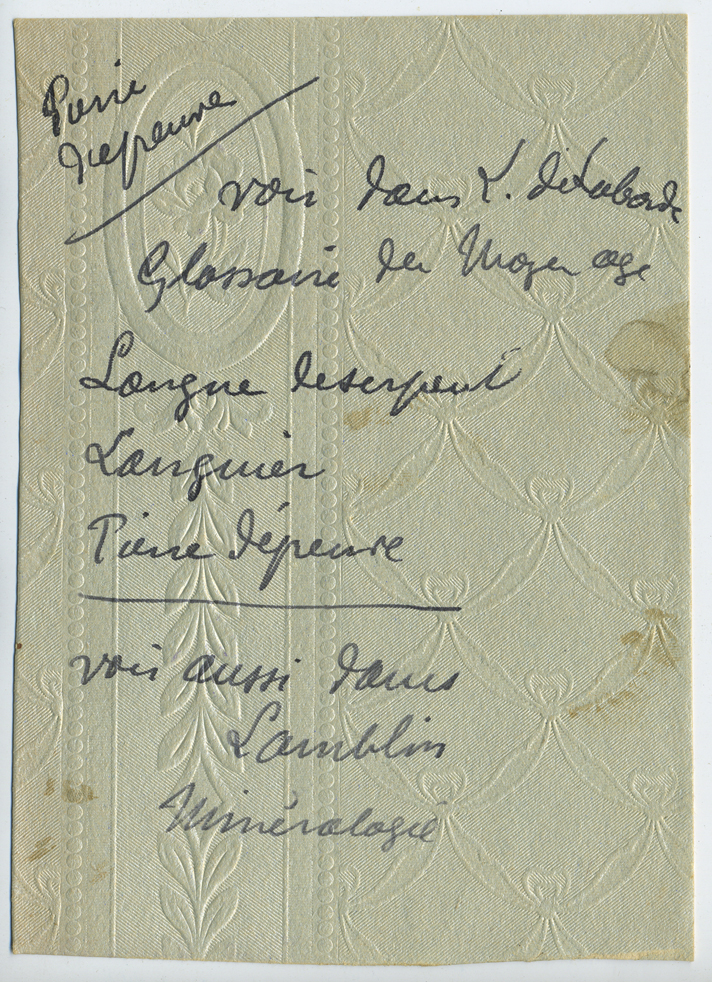 Pierre
d'epreuve
voir dans L. de Laborde
Glossaire du Moyen age
Langue de serpent
Languier
Pierre d'épreuve
voir aussi dans
Lamblin
Minéralogie